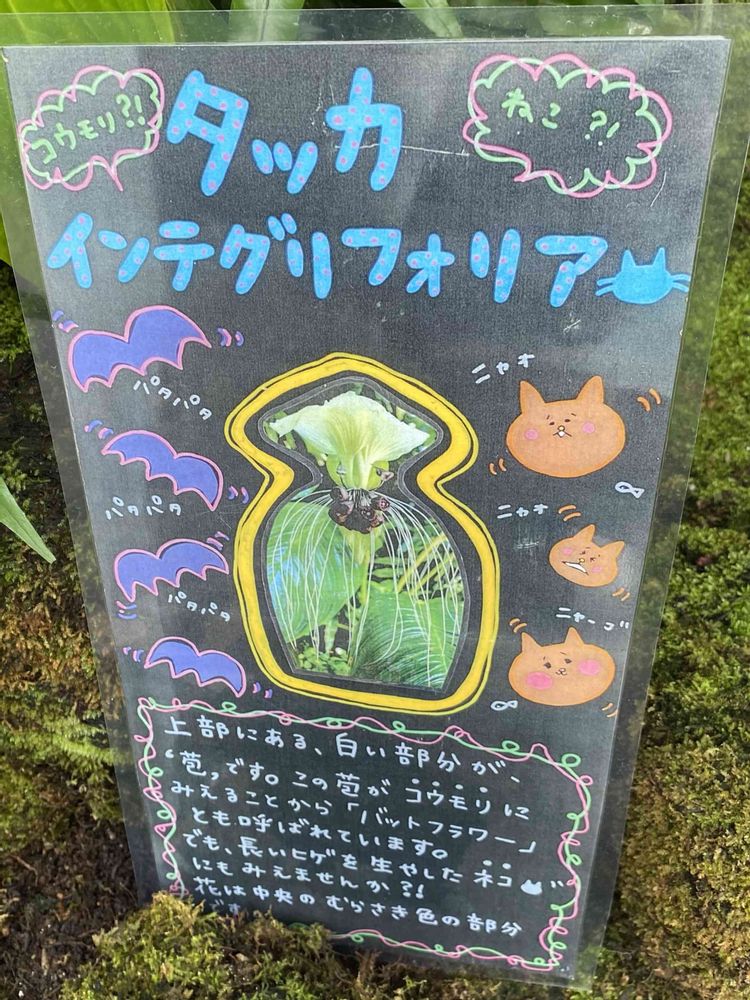 コウモリ?!
タッカ
ねこ?!
インテグリフォリア
パタパタ
パタパタ
パタパタ
ニャオ
ニャオ
ニャーゴ
上部にある、白い部分が、
"苞"です。この苞がコウモリに
みえることから「バットフラワー」
とも呼ばれています。
でも、長いヒゲを生やしたネコ
にもみえませんか?!
花は中央のむらさき色の部分
です